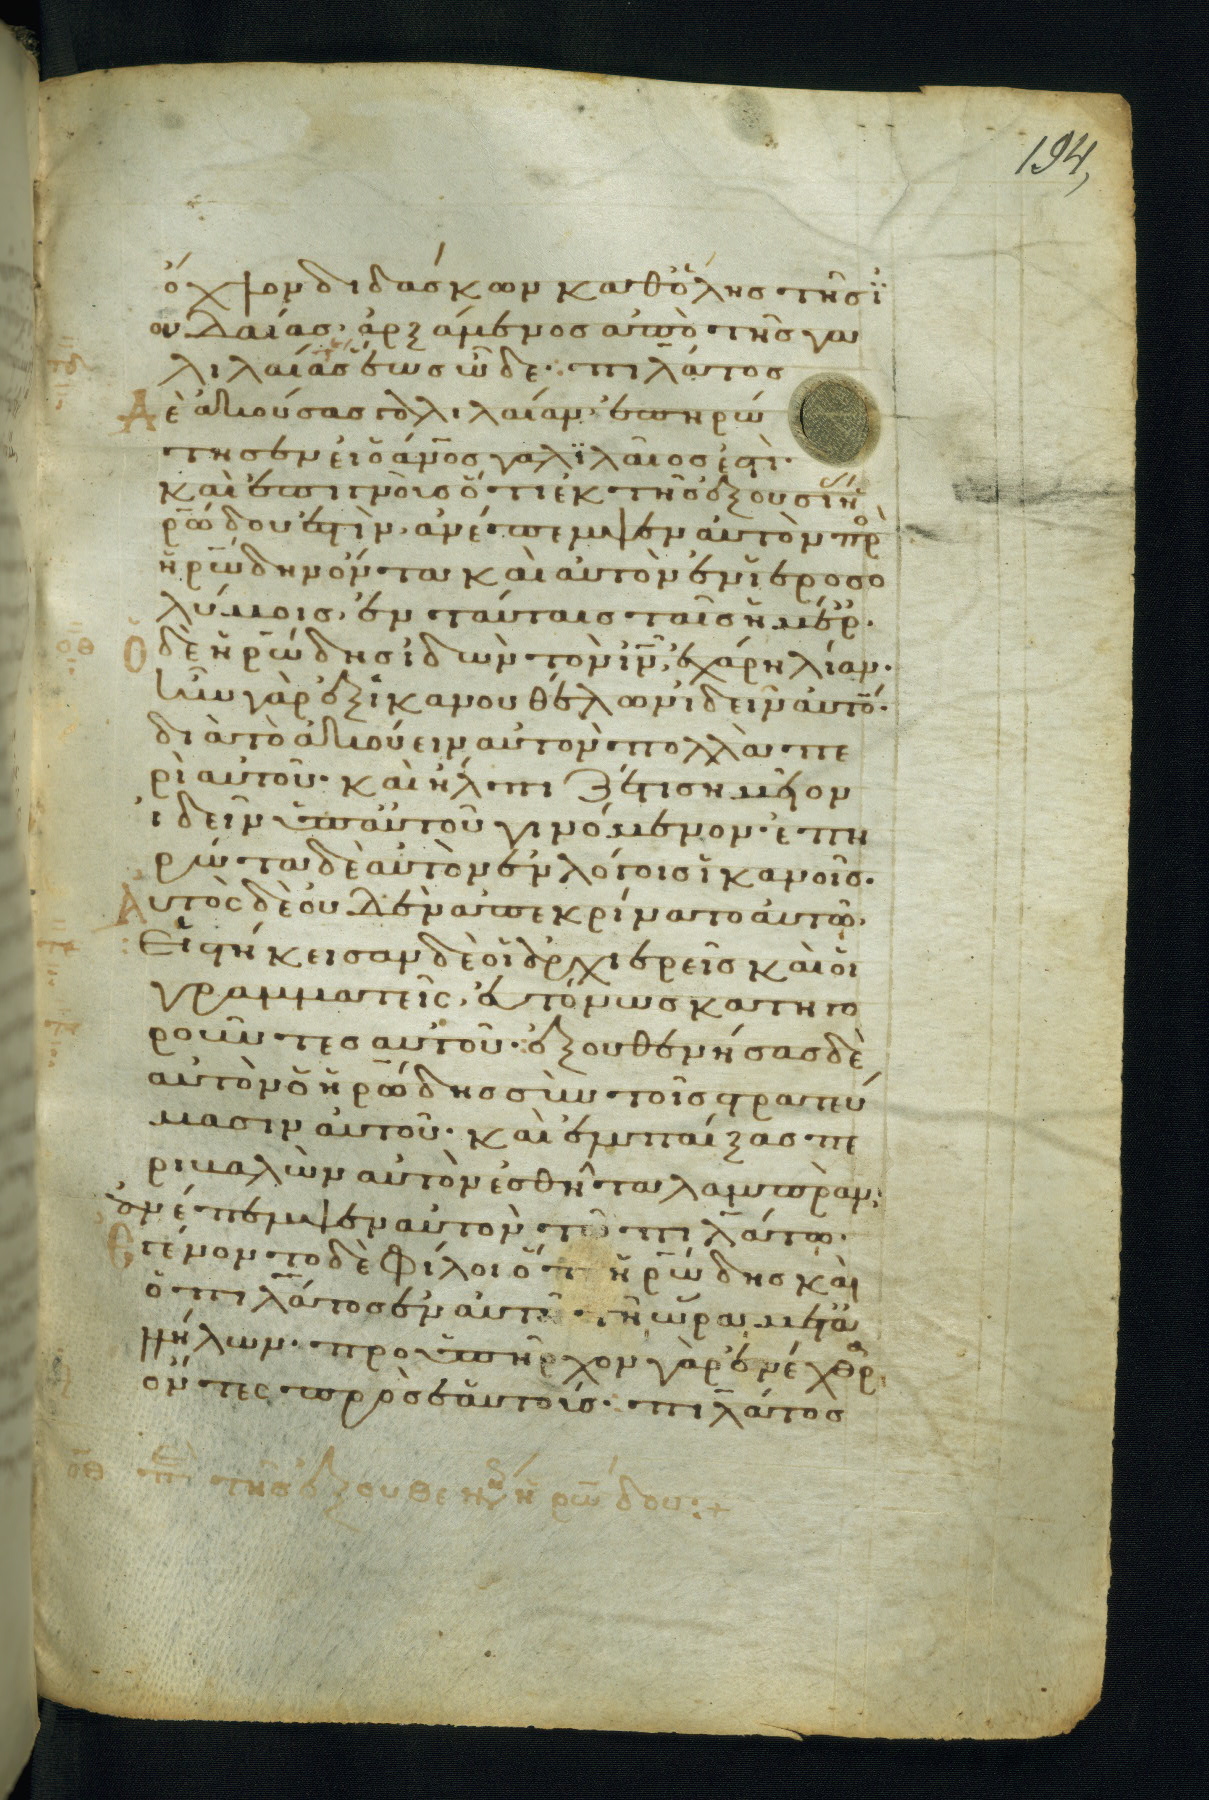 194,
ὄχλον διδάσκων καθ ὅλης τῆς ϊ
ουδαίας· ἀρξάμενος ἀπὸ τῆς γα
λιλαίας ἕως ὧδε· πιλάτος
δὲ ἀκούσας γαλιλαίαν· ἐπηρώ
τησεν εἰ ὁ ἀνος γαλϊλαῖος ἐστι·
καὶ ἐπιγνοὺς ὅτι ἐκ τῆς ἐξουσίας ἡ
ρώδου ἐστὶν, ἀνέπεμψεν αὐτὸν πρὸς
ἡρώδην ὄντα καὶ αὐτὸν ἐν ἱεροσο
λύμοις, ἐν ταύταις ταῖς ἡμέρ·
Ὁ δὲ ἡρώδης ἰδὼν τὸν ιν, ἐχάρη λίαν·
ἦν γὰρ ἐξ ἱκανοῦ θέλων ἰδεῖν αὐτό·
διὰ τὸ ἀκούειν αὐτὸν πολλὰ πε
ρὶ αὐτοῦ· καὶ ἤλπιζέ τι σημεῖον
ἰδεῖν ὑπ αὐτοῦ γινόμενον· ἐπη
ρώτα δὲ αὐτὸν ἐν λόγοις ἱκανοῖς·
Αὐτὸς δὲ οὐδὲν ἀπεκρίνατο αὐτῷ·
Εἱστήκεισαν δὲ οἱ ἀρχιερεῖς καὶ οἱ
γραμματεῖς, εὐτόνως κατηγο
ροῦντες αὐτοῦ· ἐξουθενήσας δὲ
αὐτὸν ὁ ἡρώδης σὺν τοῖς στρατεύ
μασιν αὐτοῦ· καὶ ἐμπαίξας πε
ριβαλὼν αὐτὸν ἐσθῆτα λαμπρὰν·
ἀνέπεμψεν αὐτὸν τῷ πιλάτῳ·
Ἐγένοντο δὲ φίλοι ὅ τε ἡρώδης καὶ
ὁ πιλάτος ἐν αὐτῇ τῇ ὥρᾳ μετα
λήλων· προϋπῆρχον γὰρ ἐν ἔχθρᾳ
ὄντες πρὸς ἑαυτούς· πιλάτος
οθ περὶ τῆς ἐξουθενήσεως ἡρώδου:+